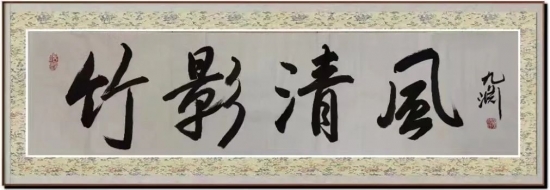 竹影清風
九渊